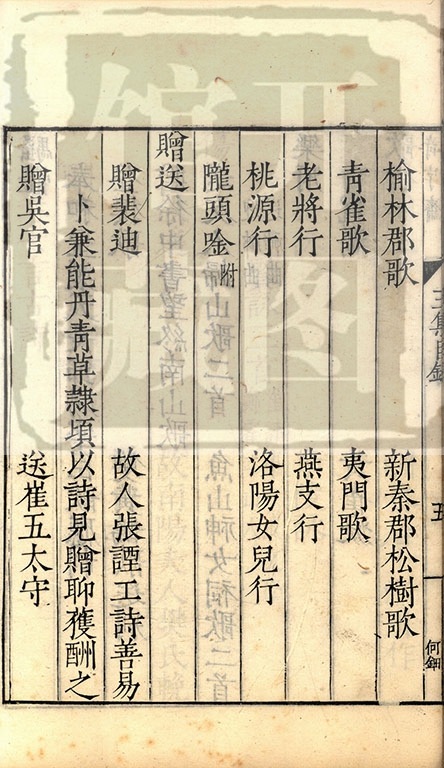 榆林郡歌　新秦郡松樹歌
青雀歌　夷門歌
老將行　燕支行
桃源行　洛陽女兒行
隴頭唫附
贈送
贈裴迪　故人張諲工詩善易
卜兼能丹青草隸頃以詩見贈聊獲酬之
贈吳官　送崔五太守
五
何鈿